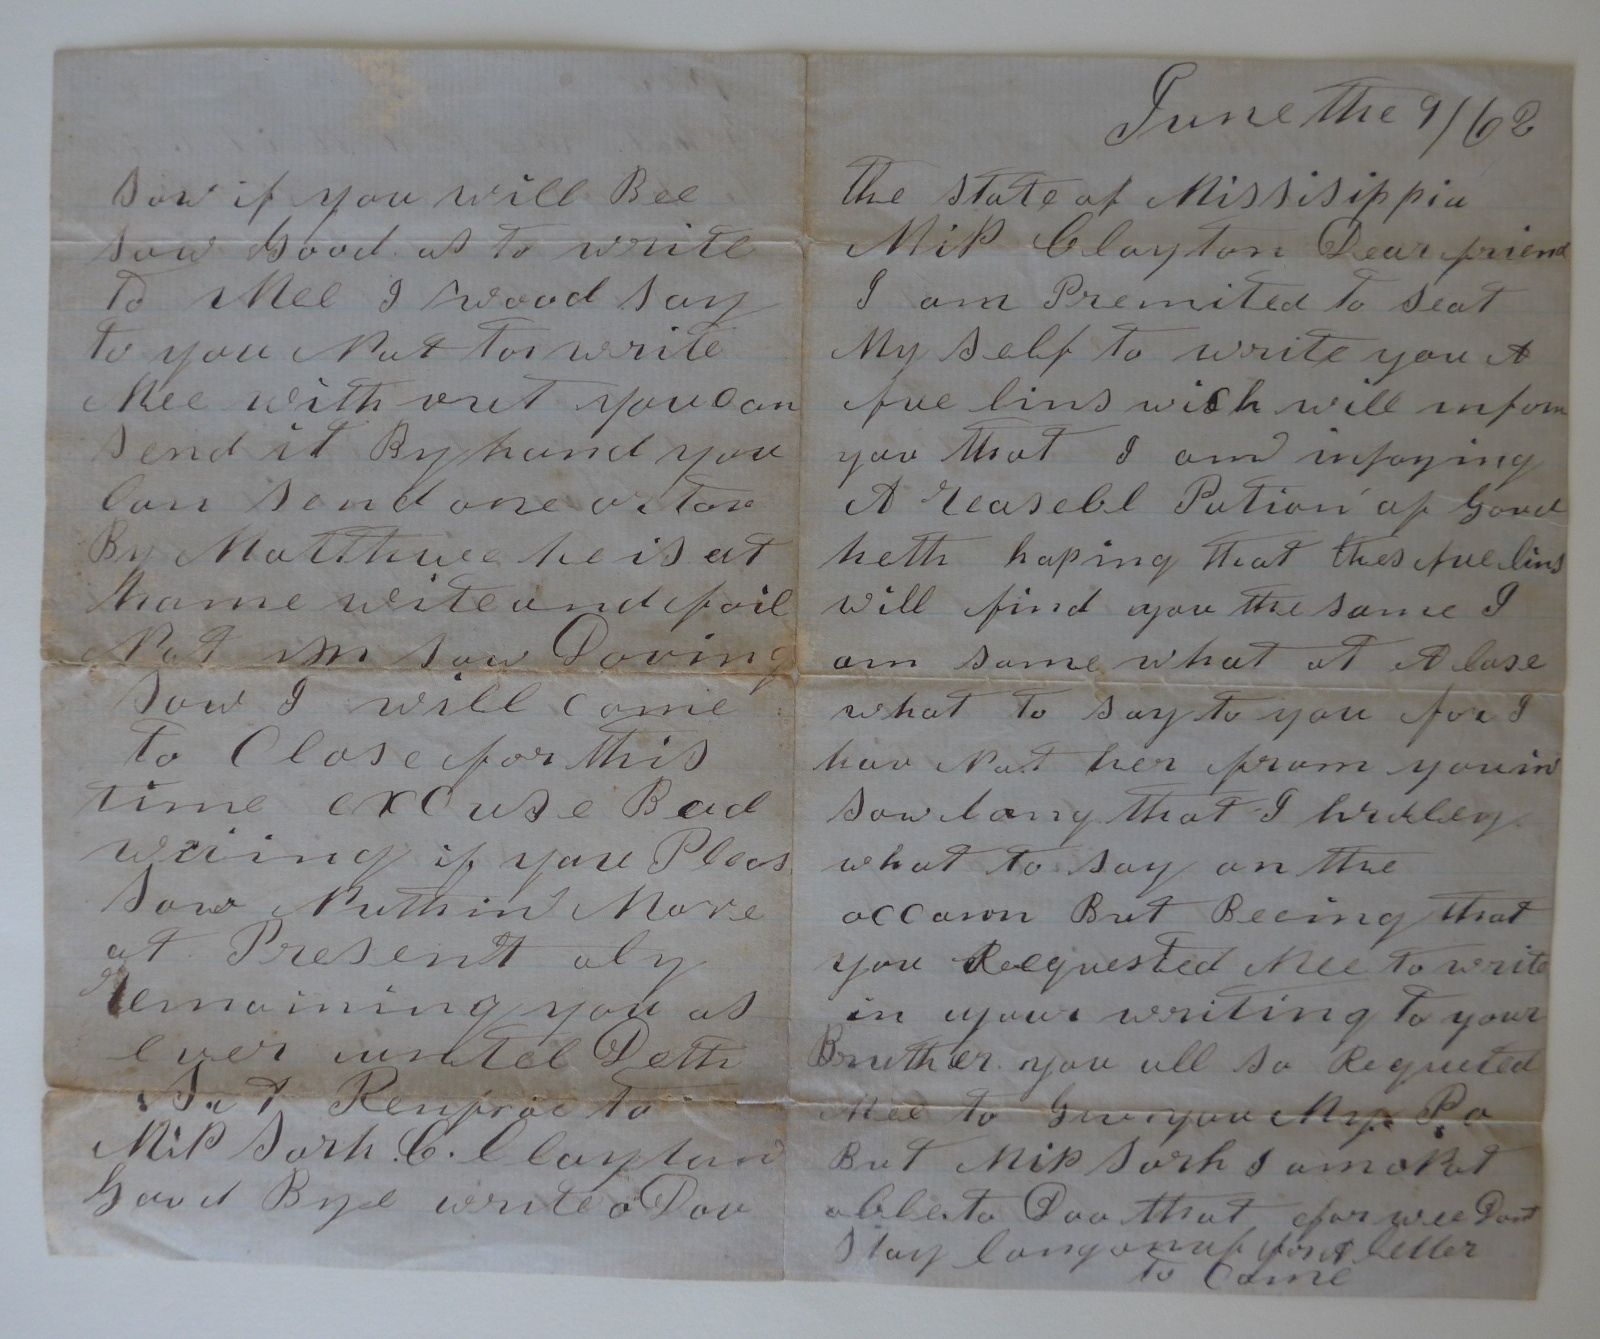 June the 9/62
the state of Mississippia
Miss Clayton Dear friend
I am Premited to seat
My self to write you A
fue lins wich will infom
you that I am injoying
A reasebl Potion of Good
helth hoping that thes fue lins
will find you the same I
am some what at A lose
what to say to you for I
hav Not her from you in
sow long that I hardley
what to say on the
occown But Beeing that
you Reequested Mee to write
in your writing to your
Bruther you all so Requted
Mee to Giv you My Po
But Miss Sarh I am Not
able to Doo that for wee Dont
stay long onuf for A letter
to Came
sow if you will Bee
sow Good as to write
to Mee I wood say
to you Not to write
Mee with out you can
send it By hand you
can send one or tow
By Matthwe he is at
home write and fail
Not in sow Doving
sow I will come
to Close for this
time excuse Bad
wriing if you Pleas
sow Nuthin More
at Present oly
remaining you as
ever untel Deth
to
Miss Sarh C. Clayton
Good Bye write Doo